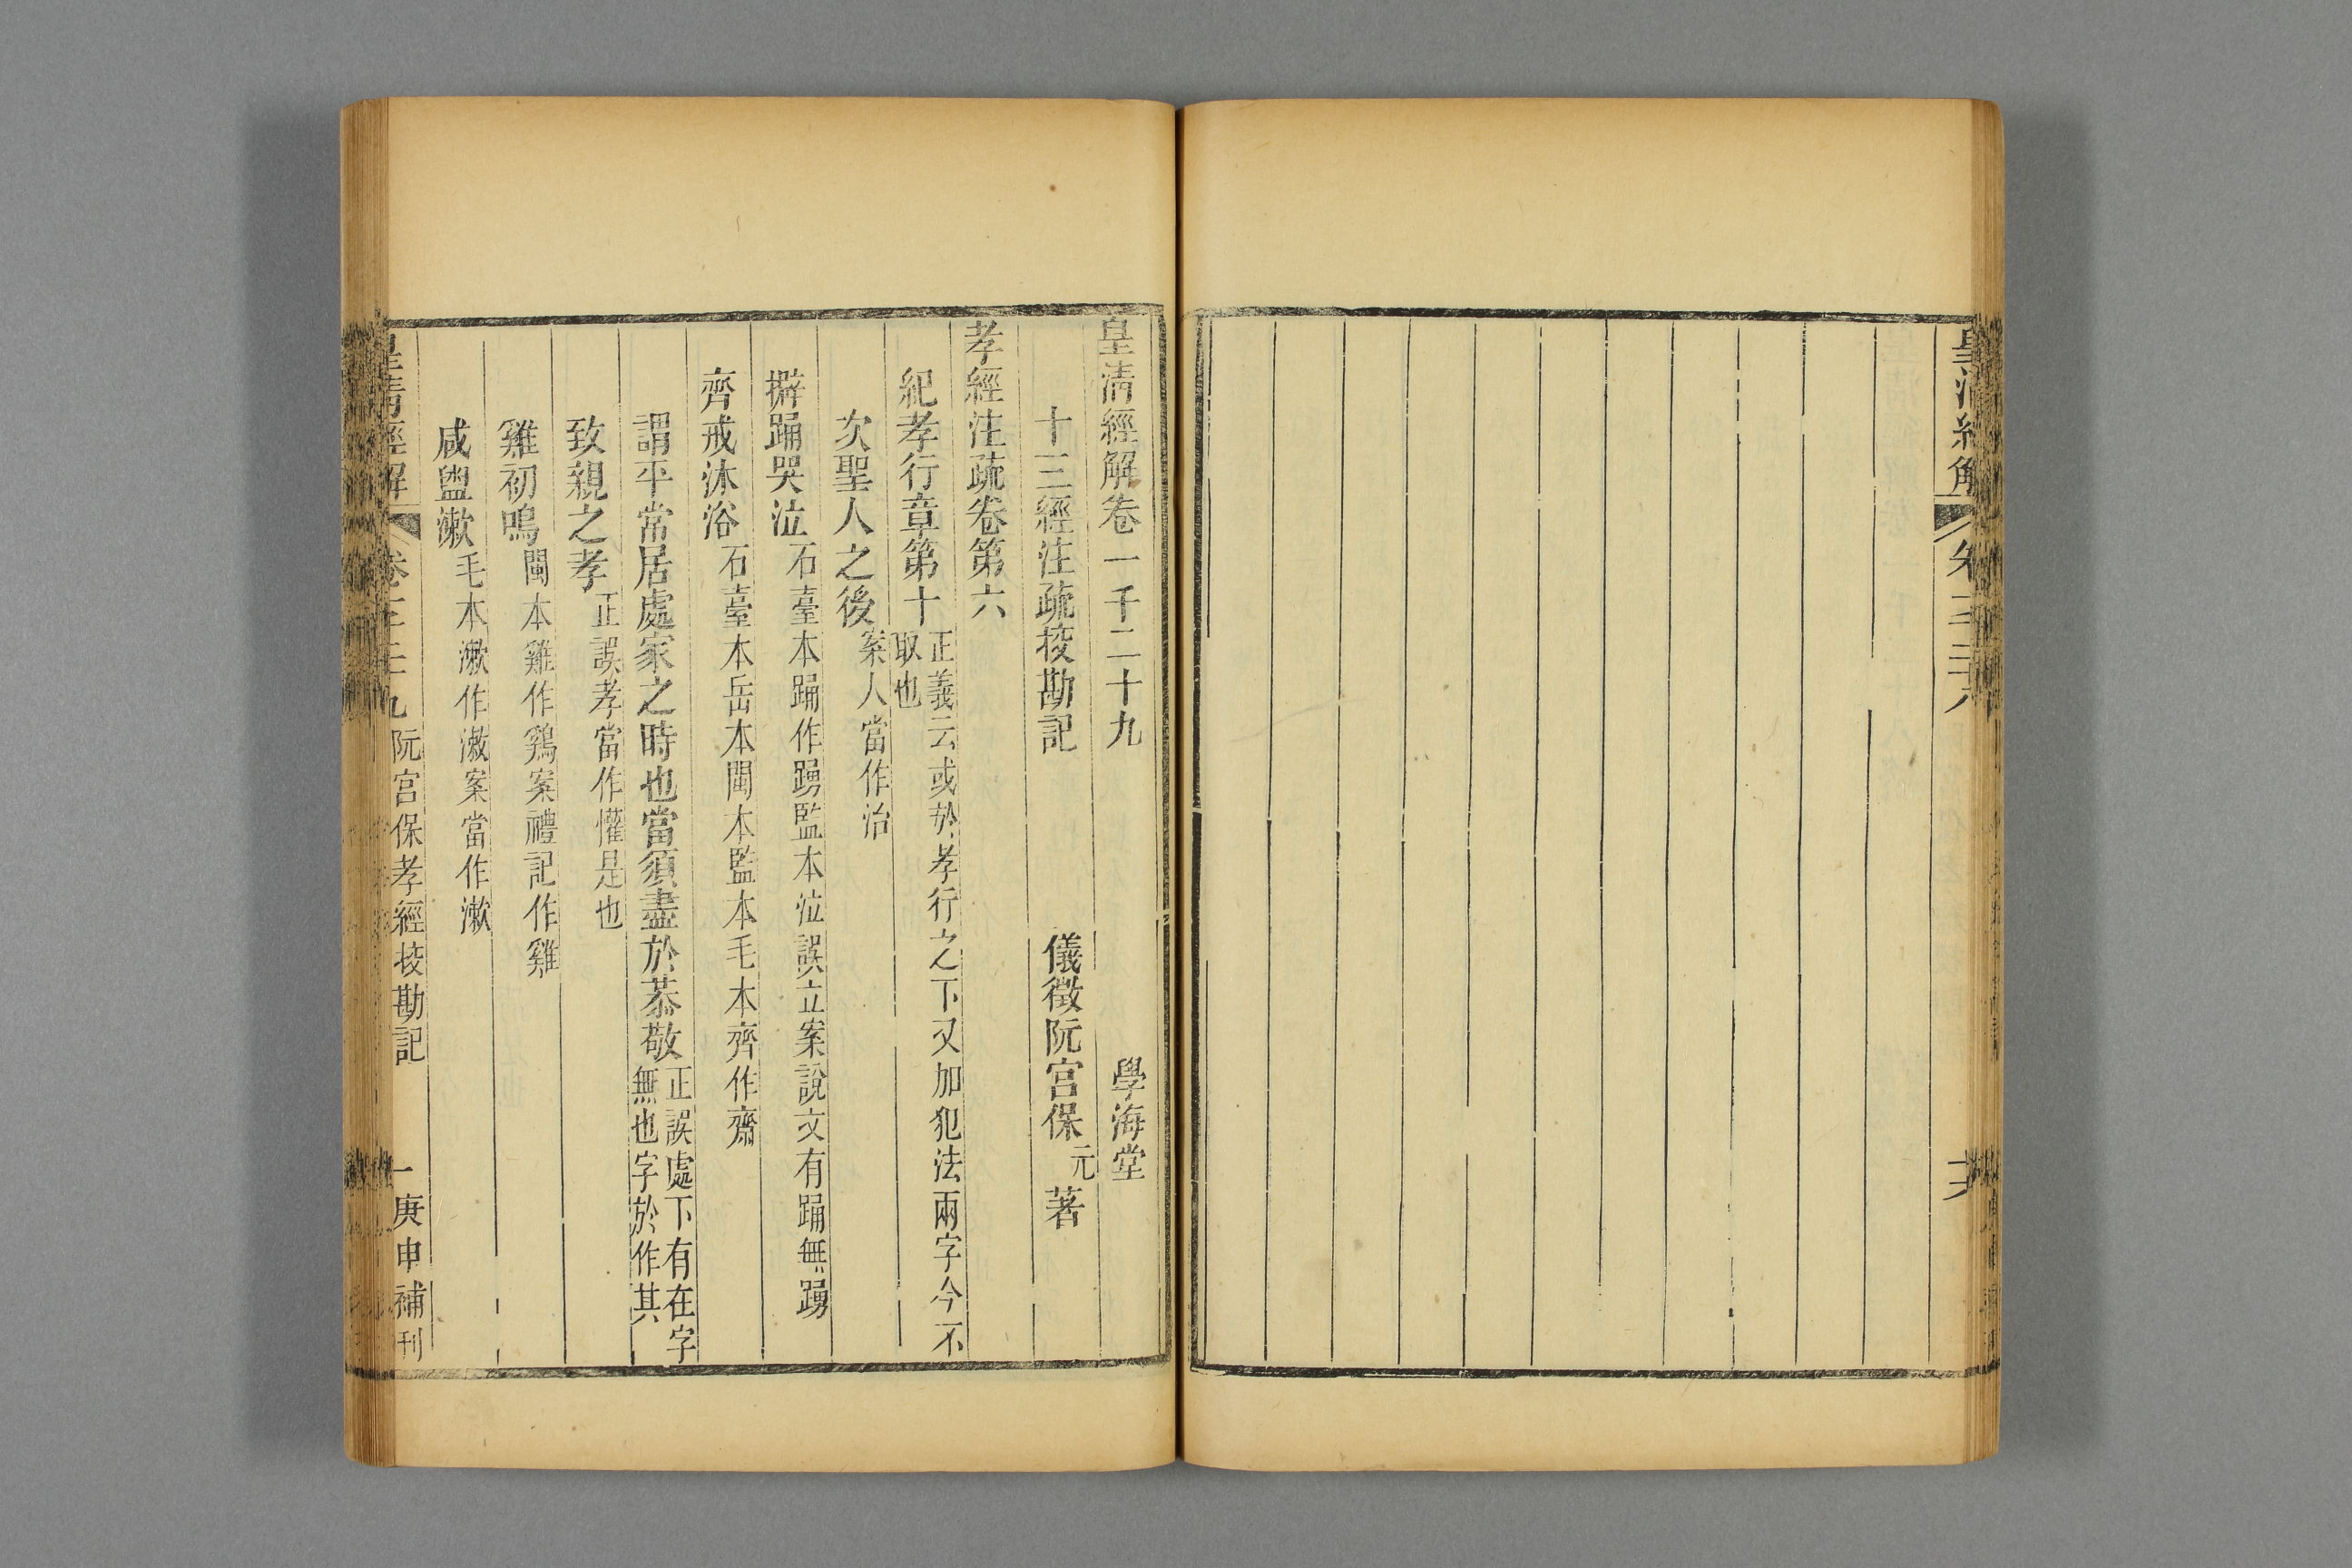 皇清經解
皇清經解卷一千二十九 學海堂
十三經注疏挍勘記 儀徵阮宮保元著
孝經注疏卷第六
紀孝行章第十 正義云或於孝行之下又加犯法兩字今不
取也
次聖人之後 案人當作治
擗踊哭泣 石臺本踊作踴監本泣誤立案說文有踊無踴
齊戒沐浴 石臺本岳本閩本監本毛本齊作齋
謂平常居處家之時也當須盡於恭敬 正誤處下有在字
無也字於作其
致親之孝 正誤孝當作懽是也
雞初鳴 閩本雞作鷄案禮記作雞
咸盥漱 毛本漱作潄案當作漱
皇清經解 阮宮保孝經挍勘記 一 庚申補刊